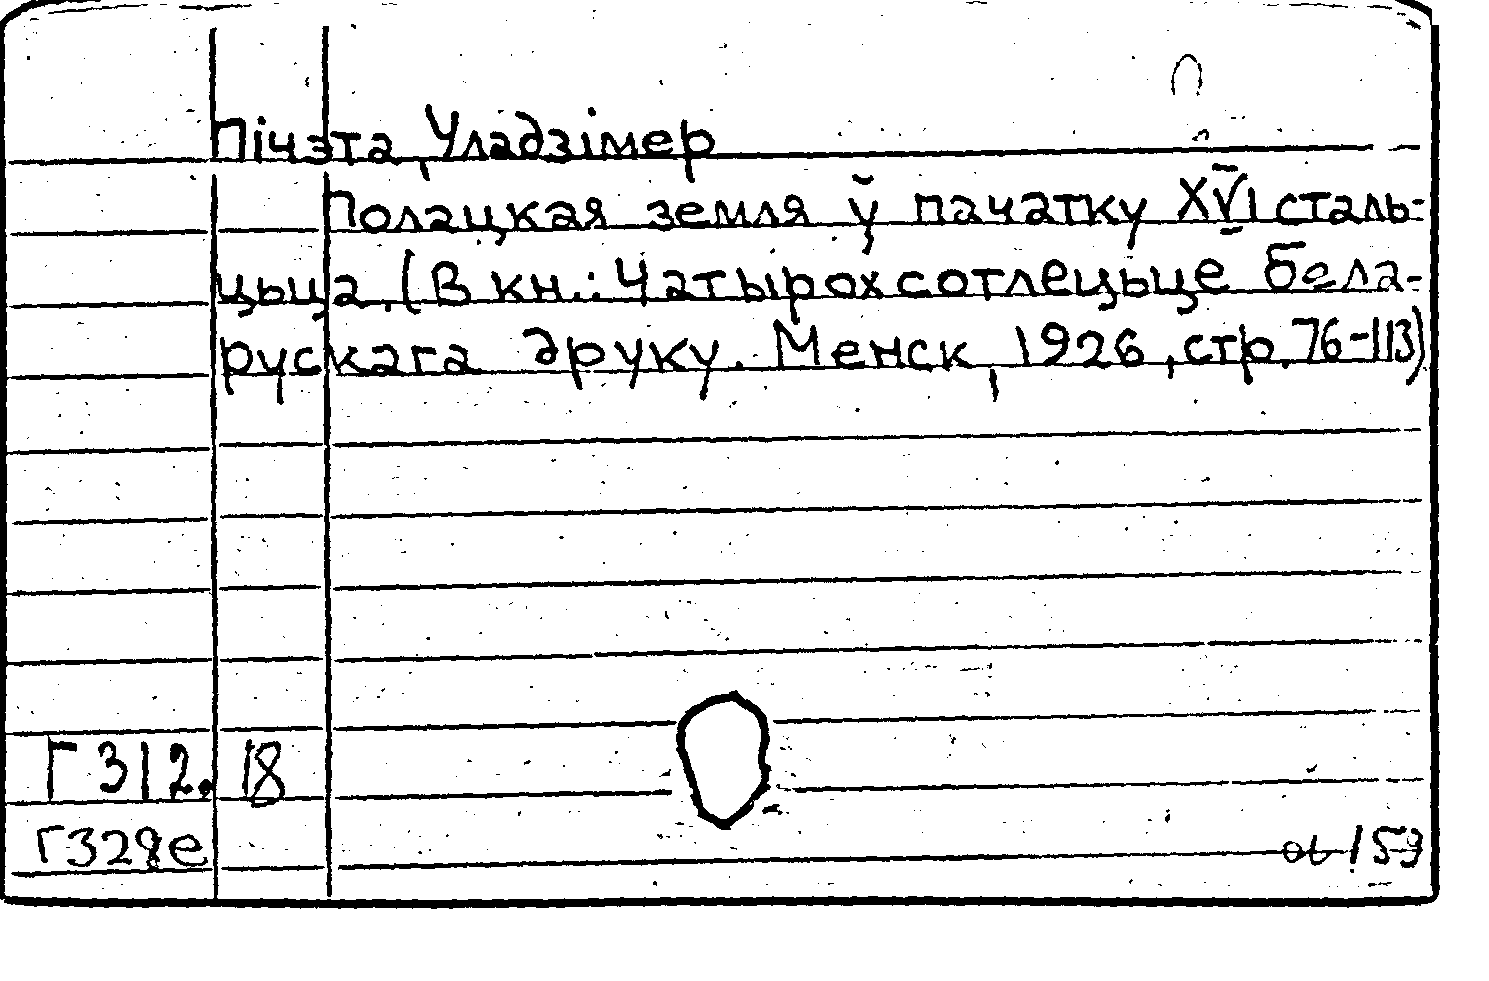 Пічэта, Уладзімер
Полацкая земля ў пачатку XVI сталь-
цьца. (В кн.: Чатырохсотлецьце бела-
рускага друку. Менск, 1926, стр. 76-113)
Г 312. 18
Г328е